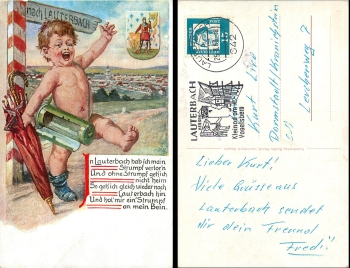 nach LAUTERBACH
In Lauterbach hab ich mein
Strumpf verlor'n
Und ohne Strumpf geh ich
nicht heim
So geh ich gleich wieder nach
Lauterbach hin
Und hol mir ein' Strumpf
an mein Bein.
LAUTERBACH
Kleinod am
Vogelsberg
Kurt
Darmstadt/
Lieber Kurt!
Viele Grüsse aus
Lauterbach sendet
dir dein Freund
Fredi!